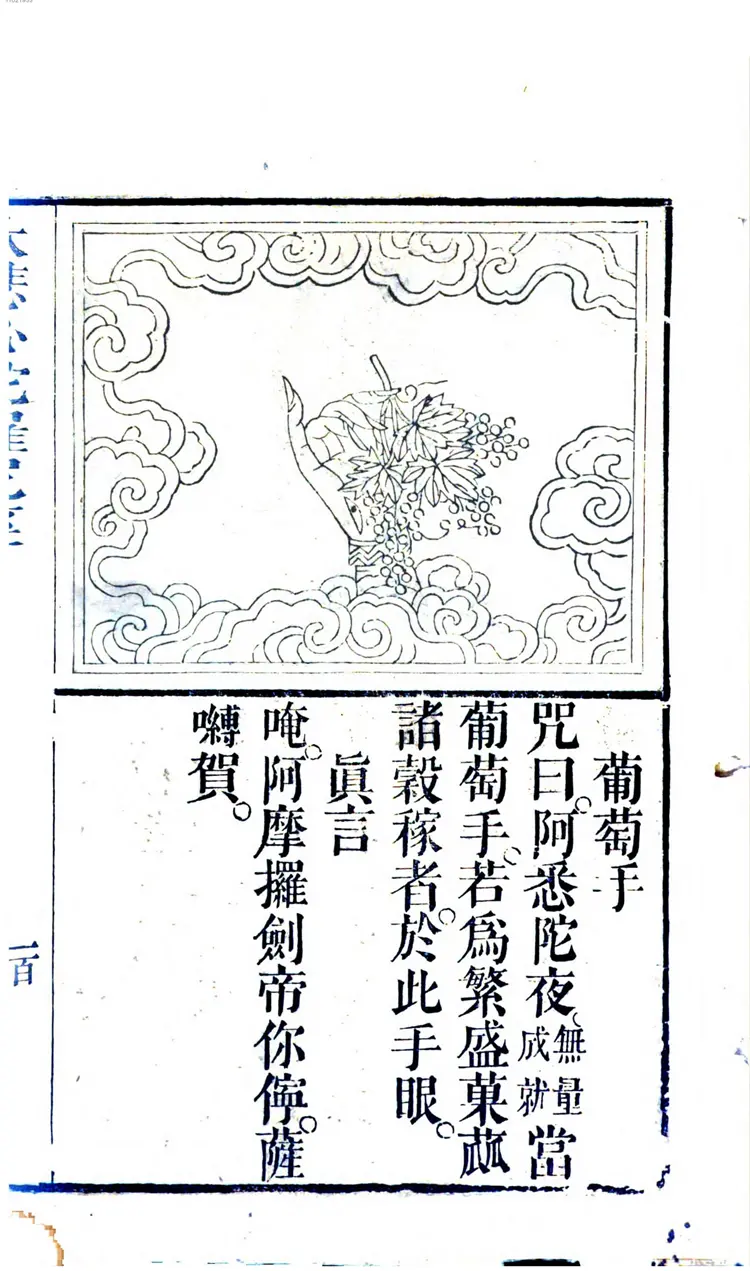 葡萄手
咒曰。阿悉陀夜。無量成就當
葡萄手。若爲繁盛菓蓏
諸穀稼者。於此手眼。
眞言
唵。阿摩攞劍帝你儜。薩
嚩賀。
一百